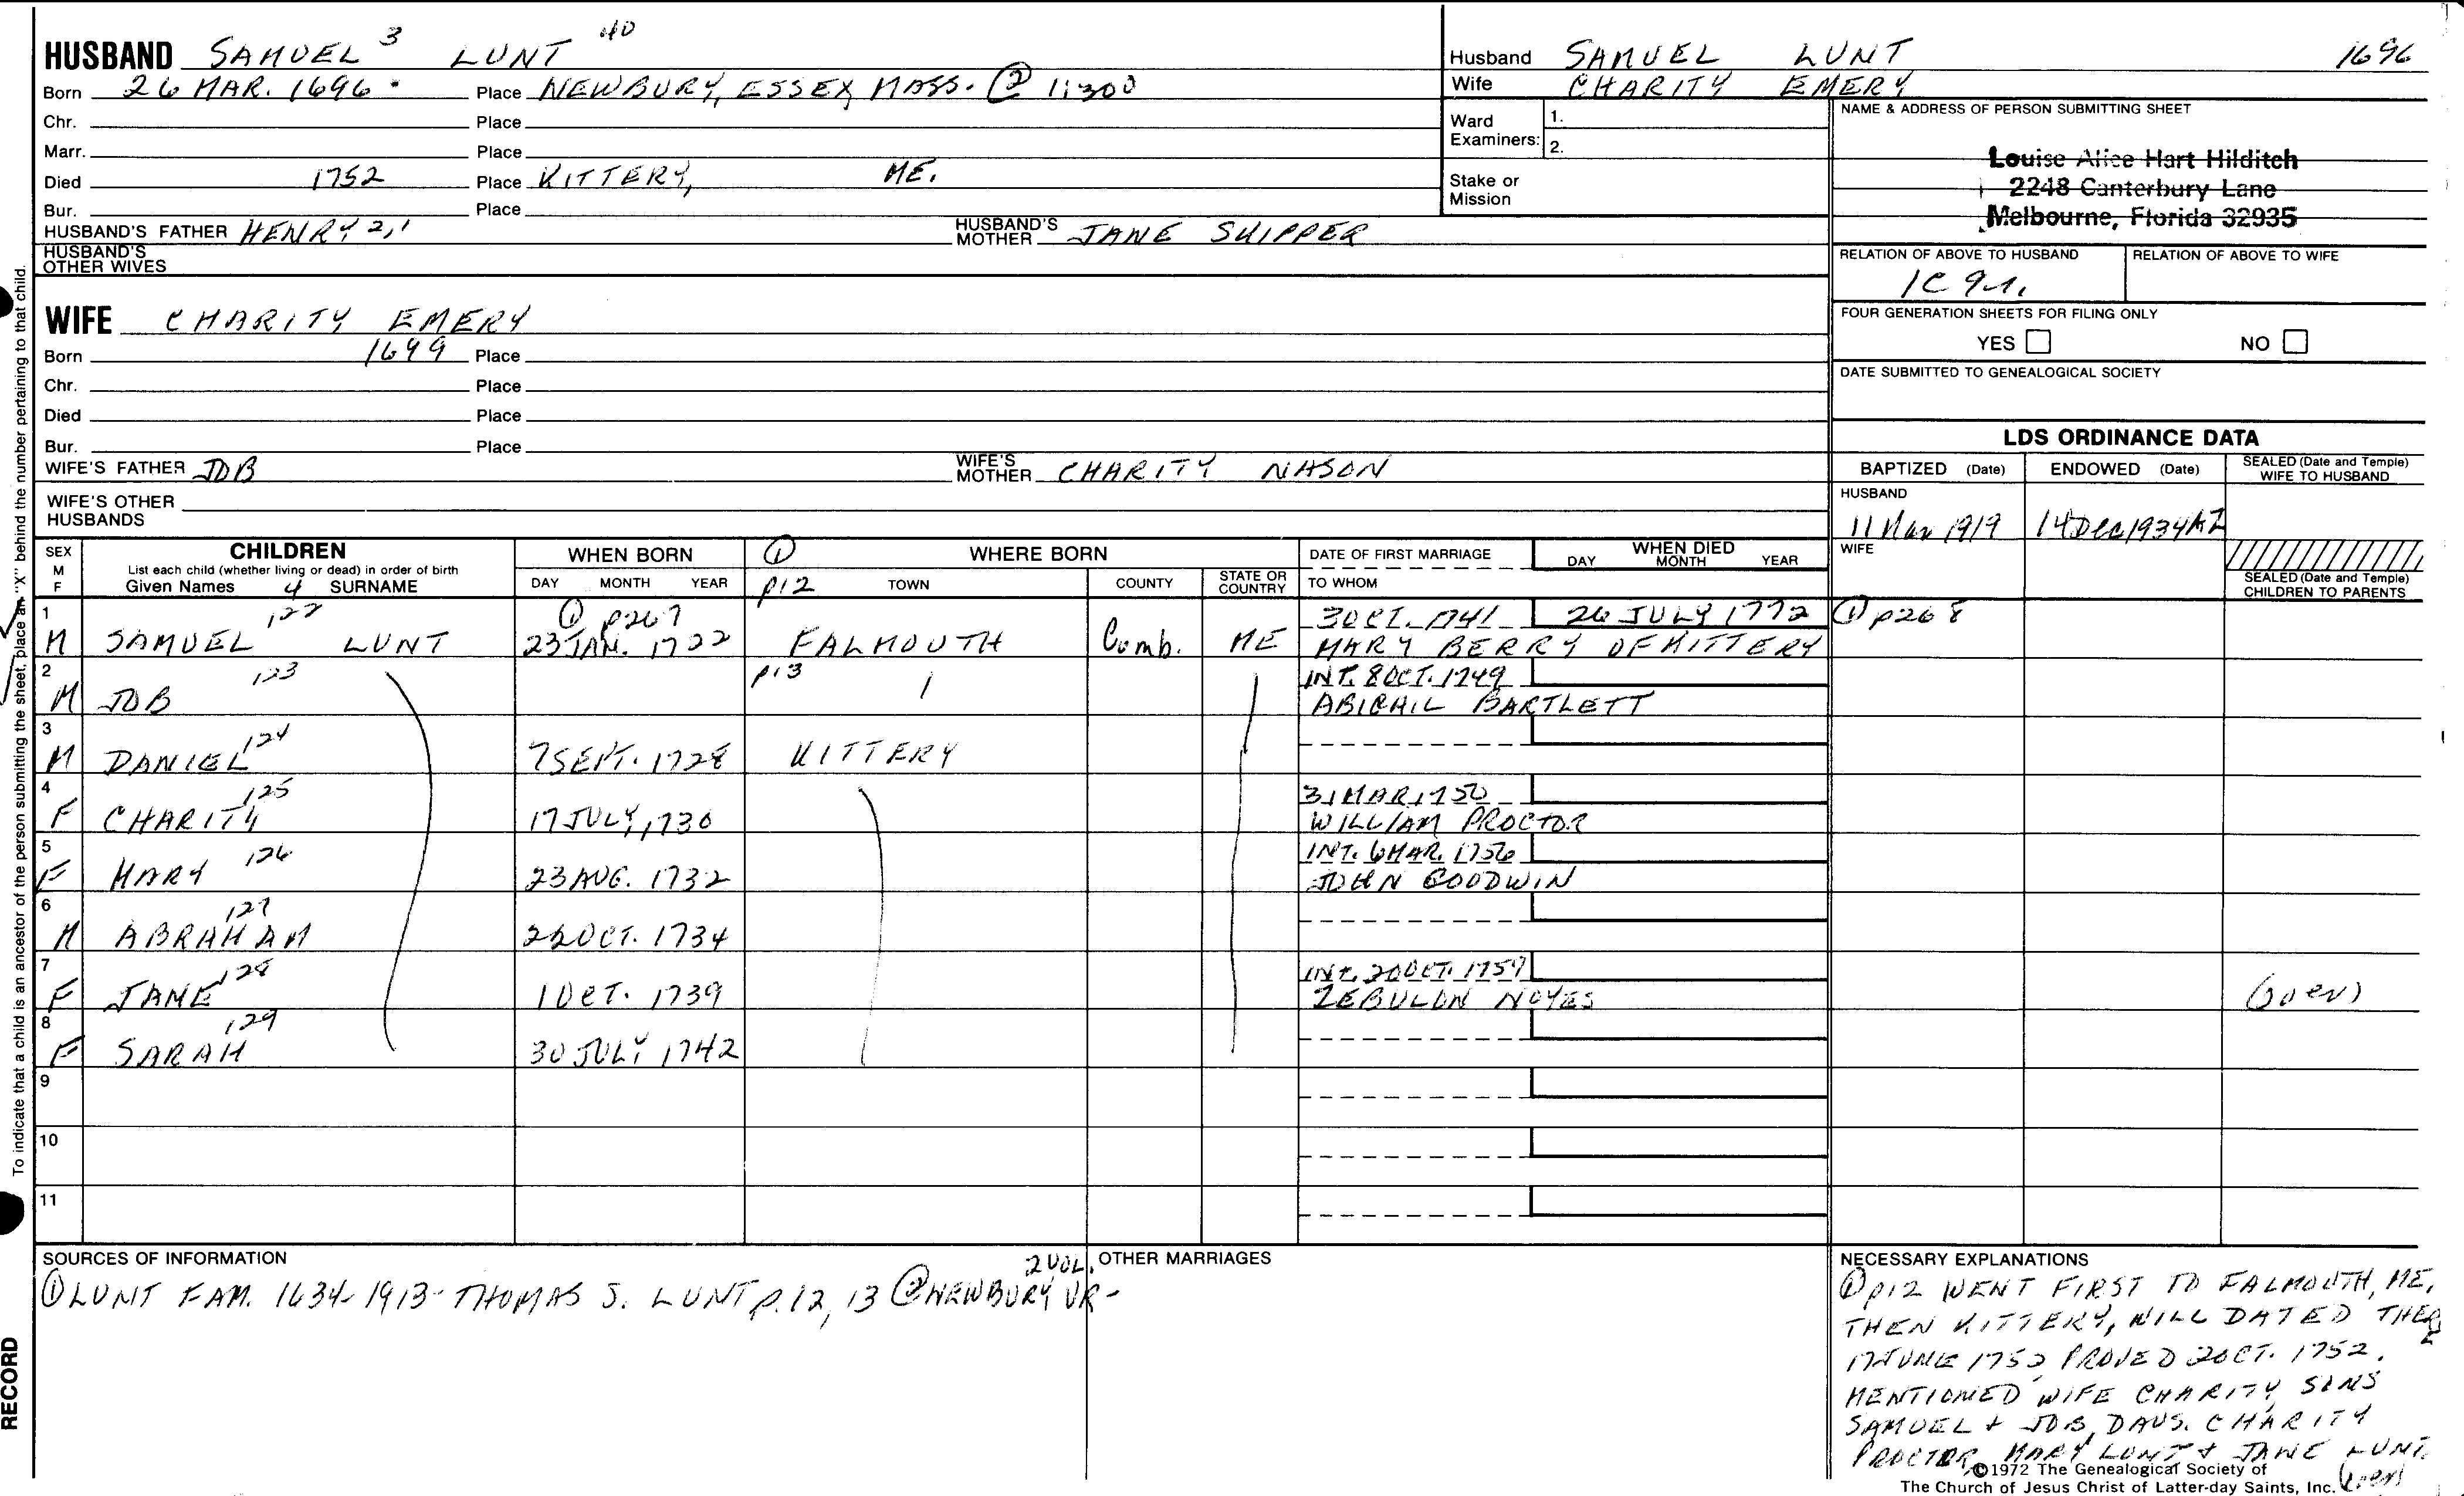 HUSBAND SAMUEL 3 LUNT 40
Born 26 MAR. 1696 Place NEWBURY, ESSEX, MASS. ② 1:300
Chr. Place
Marr. Place
Died 1752 Place KITTERY, ME.
Bur. Place
HUSBAND'S FATHER HENRY 2,1 HUSBAND'S MOTHER JANE SKIPPER
HUSBAND'S OTHER WIVES
WIFE CHARITY EMERY
Born 1699 Place
Chr. Place
Died Place
Bur. Place
WIFE'S FATHER JOB WIFE'S MOTHER CHARITY NASON
WIFE'S OTHER HUSBANDS
Husband SAMUEL LUNT 1696
Wife CHARITY EMERY
Ward Examiners: 1.
2.
Stake or Mission
NAME & ADDRESS OF PERSON SUBMITTING SHEET
Louise Alice Hart Hilditch
2248 Canterbury Lane
Melbourne, Florida 32935
RELATION OF ABOVE TO HUSBAND RELATION OF ABOVE TO WIFE
1C 9r.
FOUR GENERATION SHEETS FOR FILING ONLY
YES NO
DATE SUBMITTED TO GENEALOGICAL SOCIETY
LDS ORDINANCE DATA
BAPTIZED (Date) ENDOWED (Date) SEALED (Date and Temple) WIFE TO HUSBAND
HUSBAND
11 Mar 1919 14 Dec 1934 AZ
WIFE
SEALED (Date and Temple) CHILDREN TO PARENTS
SEX M F CHILDREN List each child (whether living or dead) in order of birth Given Names 4 SURNAME WHEN BORN DAY MONTH YEAR ① p12 WHERE BORN TOWN COUNTY STATE OR COUNTRY DATE OF FIRST MARRIAGE TO WHOM WHEN DIED DAY MONTH YEAR
1 M SAMUEL 122 LUNT ① p267 23 JAN. 1722 FALMOUTH Cumb. ME 3 OCT. 1741 26 JULY 1772 ① p268
MARY BERRY OF KITTERY
2 M JOB 123 p13 INT. 8 OCT. 1749
ABIGAIL BARTLETT
3 M DANIEL 124 7 SEPT. 1728 KITTERY
4 F CHARITY 125 17 JULY, 1730 31 MAR, 1750
WILLIAM PROCTOR
5 F MARY 126 23 AUG. 1732 INT. 6 MAR. 1756
JOHN GOODWIN
6 M ABRAHAM 127 22 OCT. 1734
7 F JANE 128 1 OCT. 1739 INT. 20 OCT. 1759
ZEBULON NOYES (over)
8 F SARAH 129 30 JULY 1742
9
10
11
SOURCES OF INFORMATION
① LUNT FAM. 1634-1913- THOMAS S. LUNT p. 12, 13 ② NEWBURY VR - 2 VOL.
OTHER MARRIAGES
NECESSARY EXPLANATIONS
① p12 WENT FIRST TO FALMOUTH, ME,
THEN KITTERY, WILL DATED THERE
17 JUNE 1752 PROVED 2 OCT. 1752.
MENTIONED WIFE CHARITY, SONS
SAMUEL + JOB, DAUS. CHARITY
PROCTOR, MARY LUNT + JANE LUNT.
(over)
©1972 The Genealogical Society of
The Church of Jesus Christ of Latter-day Saints, Inc.
To indicate that a child is an ancestor of the person submitting the sheet, place an "X" behind the number pertaining to that child.
RECORD